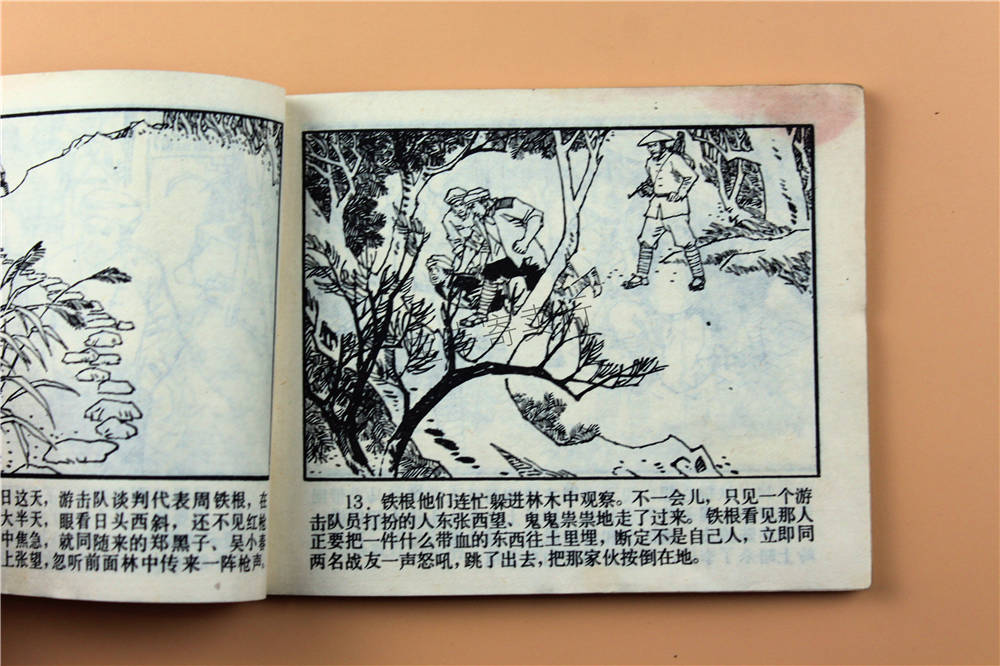 日这天，游击队谈判代表周铁根，在
大半天，眼看日头西斜，还不见红枪
中焦急，就同随来的郑黑子、吴小春
上张望，忽听前面林中传来一阵枪声。
13．铁根他们连忙躲进林木中观察。不一会儿，只见一个游
击队员打扮的人东张西望、鬼鬼祟祟地走了过来。铁根看见那人
正要把一件什么带血的东西往土里埋，断定不是自己人，立即同
两名战友一声怒吼，跳了出去，把那家伙按倒在地。